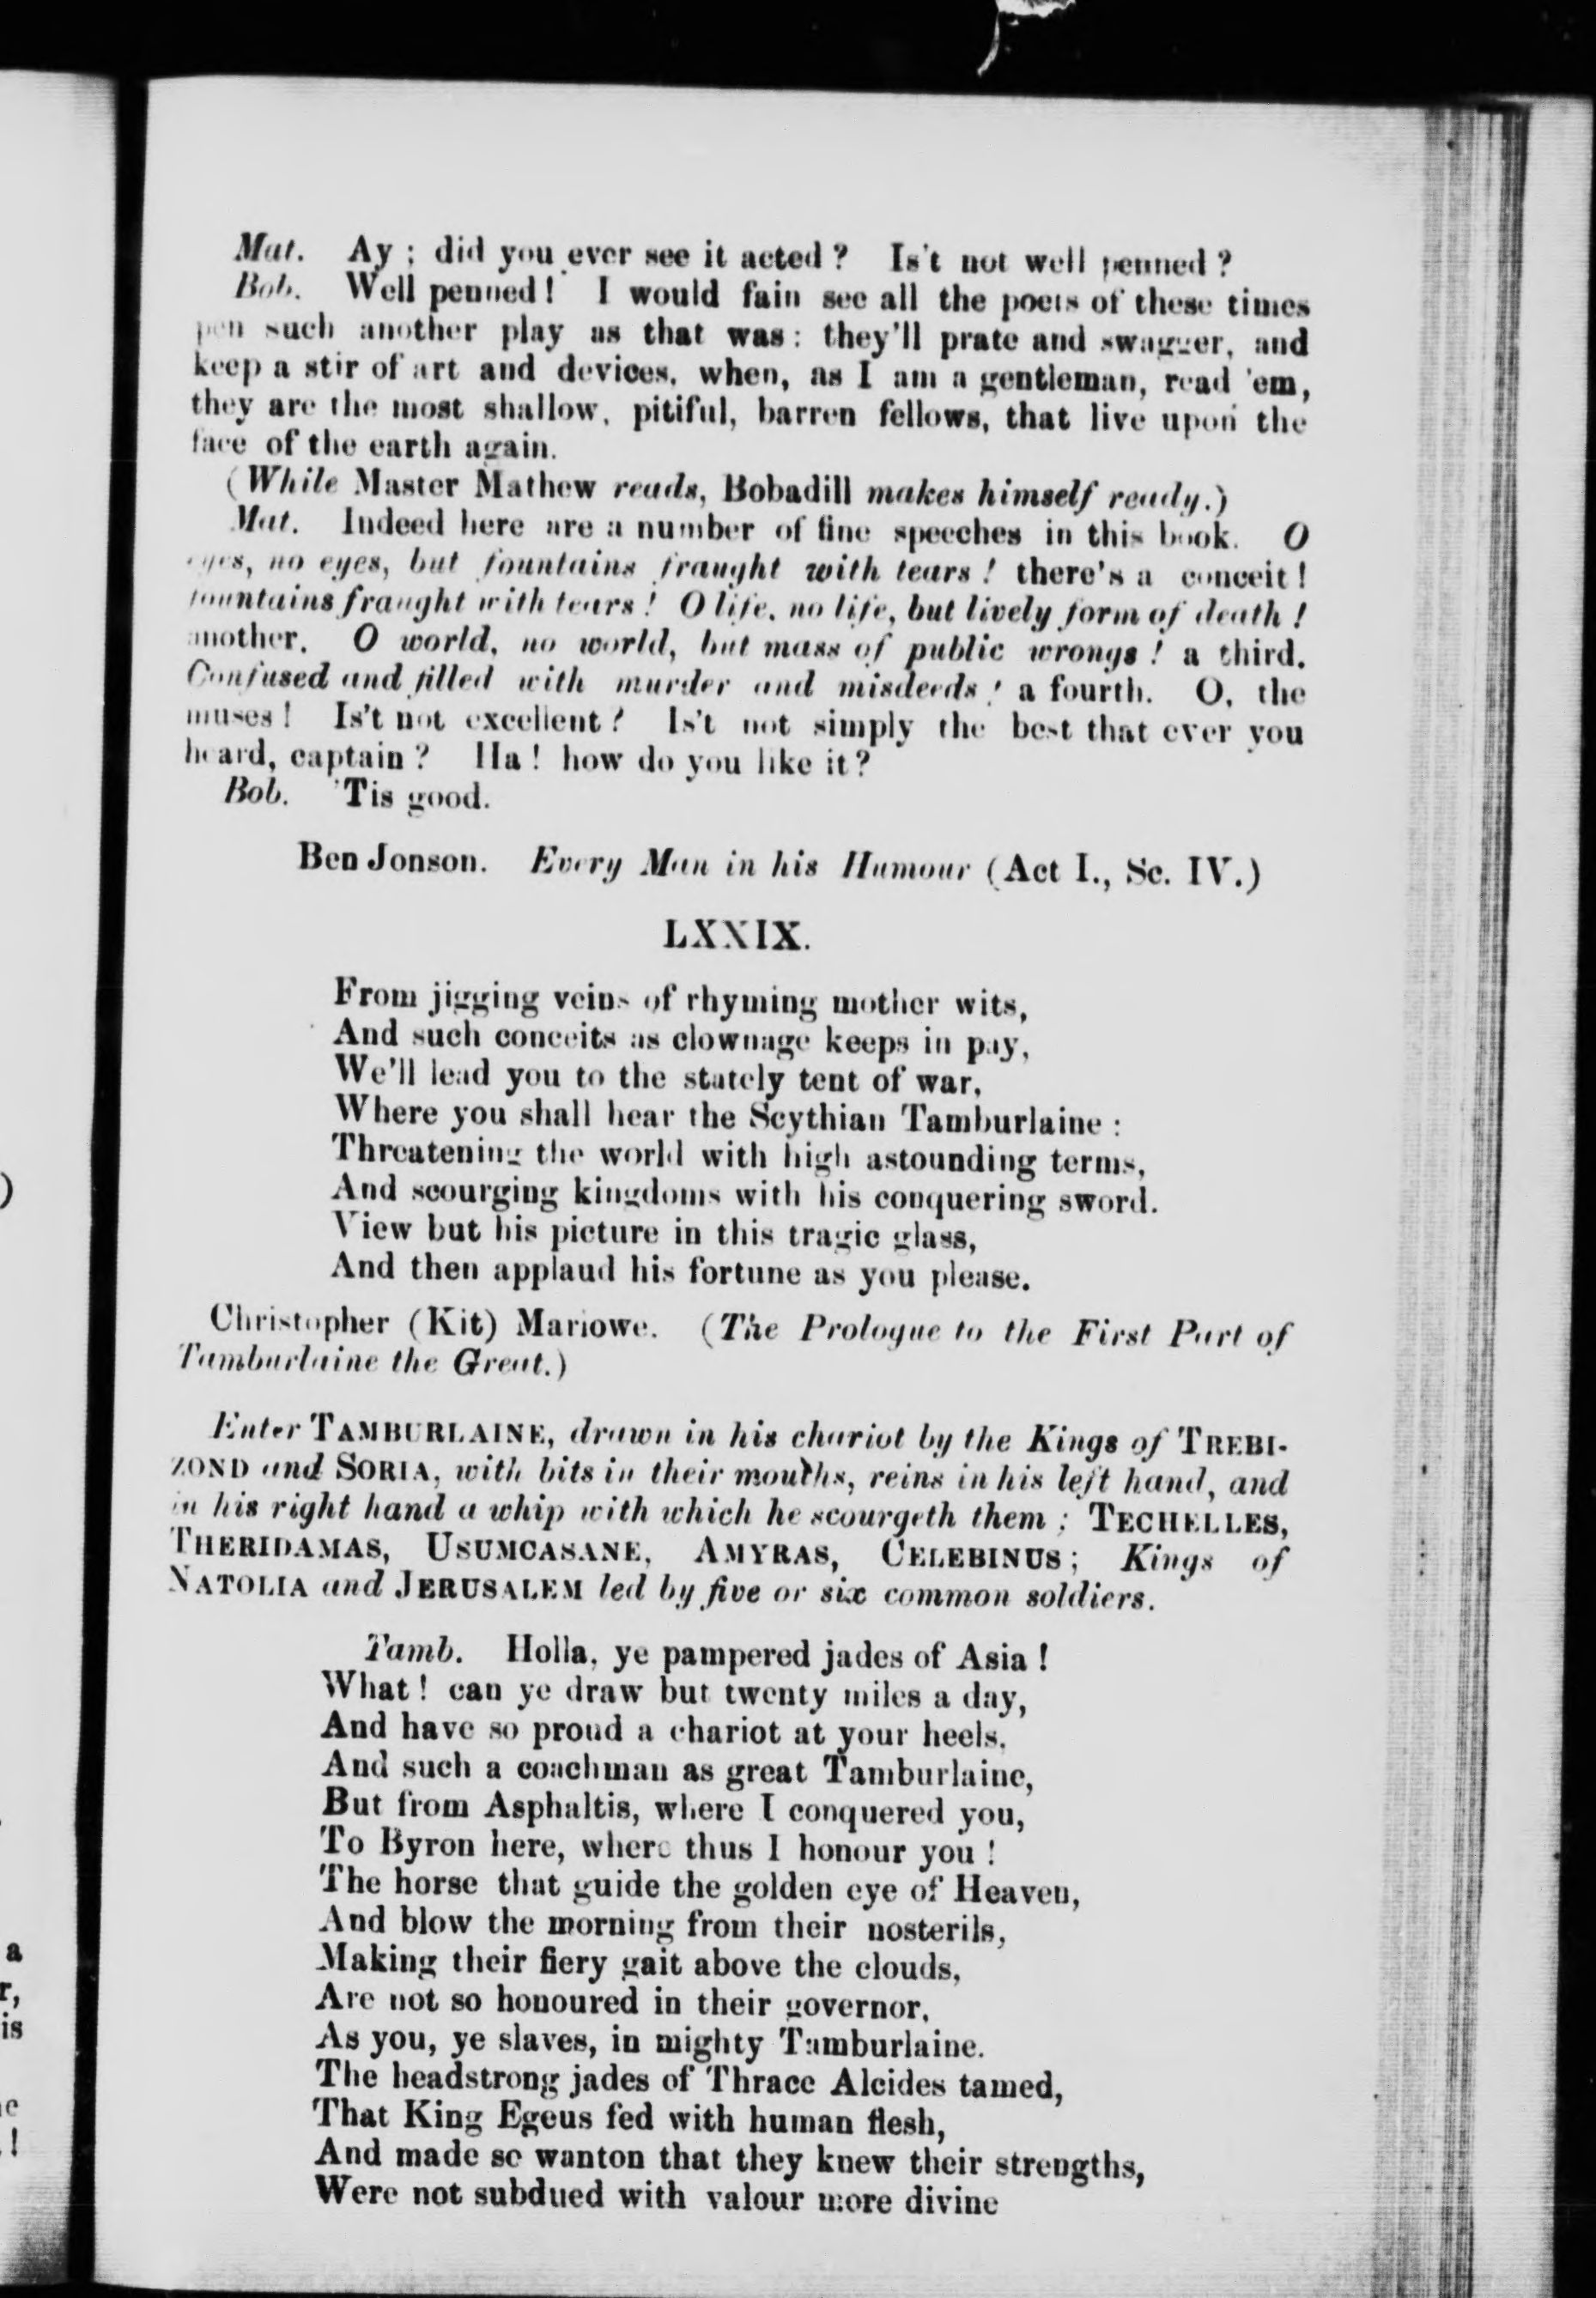 Mat. Ay ; did you ever see it acted ? Is't not well penned ?
Bob. Well penned ! I would fain see all the poets of these times
pen such another play as that was : they'll prate and swagger, and
keep a stir of art and devices, when, as I am a gentleman, read 'em,
they are the most shallow, pitiful, barren fellows, that live upon the
face of the earth again.
(While Master Mathew reads, Bobadill makes himself ready.)
Mat. Indeed here are a number of fine speeches in this book. O
eyes, no eyes, but fountains fraught with tears ! there's a conceit !
fountains fraught with tears ! O life, no life, but lively form of death !
another. O world, no world, but mass of public wrongs ! a third.
Confused and filled with murder and misdeeds ! a fourth. O, the
muses ! Is't not excellent ? Is't not simply the best that ever you
heard, captain ? Ha ! how do you like it ?
Bob. 'Tis good.
Ben Jonson. Every Man in his Humour (Act I., Sc. IV.)
LXXIX.
From jigging veins of rhyming mother wits,
And such conceits as clownage keeps in pay,
We'll lead you to the stately tent of war,
Where you shall hear the Scythian Tamburlaine :
Threatening the world with high astounding terms,
And scourging kingdoms with his conquering sword.
View but his picture in this tragic glass,
And then applaud his fortune as you please.
Christopher (Kit) Marlowe. (The Prologue to the First Part of
Tamburlaine the Great.)
Enter TAMBURLAINE, drawn in his chariot by the Kings of TREBI-
ZOND and SORIA, with bits in their mouths, reins in his left hand, and
in his right hand a whip with which he scourgeth them ; TECHELLES,
THERIDAMAS, USUMCASANE, AMYRAS, CELEBINUS ; Kings of
NATOLIA and JERUSALEM led by five or six common soldiers.
Tamb. Holla, ye pampered jades of Asia !
What ! can ye draw but twenty miles a day,
And have so proud a chariot at your heels,
And such a coachman as great Tamburlaine,
But from Asphaltis, where I conquered you,
To Byron here, where thus I honour you !
The horse that guide the golden eye of Heaven,
And blow the morning from their nosterils,
Making their fiery gait above the clouds,
Are not so honoured in their governor,
As you, ye slaves, in mighty Tamburlaine.
The headstrong jades of Thrace Alcides tamed,
That King Egeus fed with human flesh,
And made so wanton that they knew their strengths,
Were not subdued with valour more divine